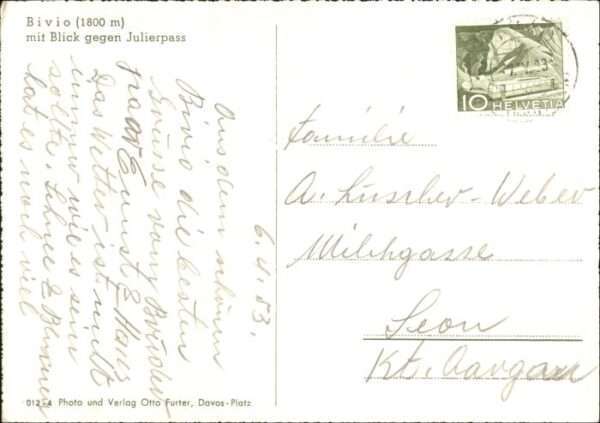 Bivio (1800 m)
mit Blick gegen Julierpass
10 HELVETIA
6. 4. 53.
Aus dem schönen
Bivio die besten
Grüsse vom
Ernst & Hans
Das Wetter ist nicht
immer wie es sein
sollte. Schnee &
hat es noch viel
Familie
A. Lüscher-Weber
Milchgasse
Seon
Kt. Aargau
012-4 Photo und Verlag Otto Furter, Davos-Platz